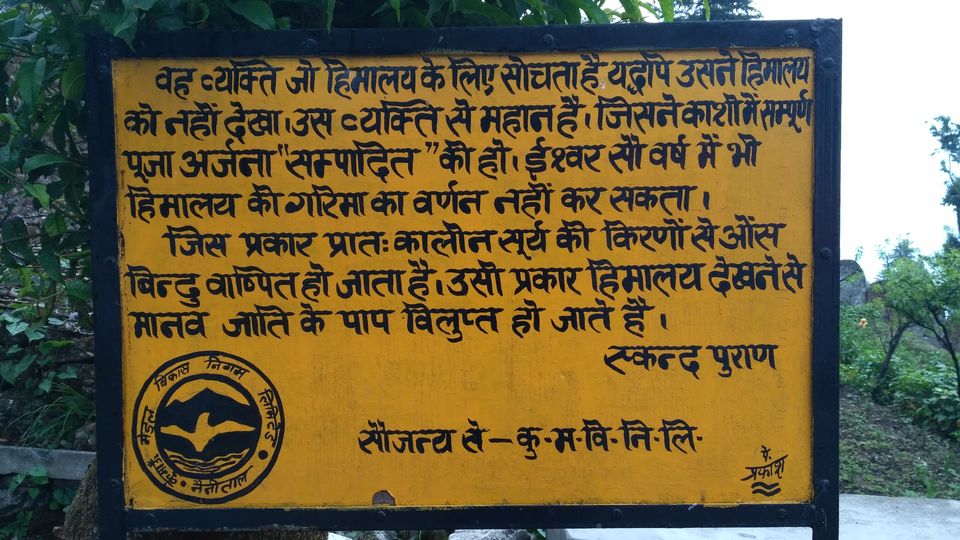 वह व्यक्ति जो हिमालय के लिए सोचता है यद्यपि उसने हिमालय
को नहीं देखा। उस व्यक्ति से महान है, जिसने काशी में सम्पूर्ण
पूजा अर्जना “सम्पादित” की हो। ईश्वर सौ वर्ष में भी
हिमालय की गरिमा का वर्णन नहीं कर सकता।
जिस प्रकार प्रातः कालीन सूर्य की किरणों से ओंस
बिन्दु वाष्पित हो जाता है। उसी प्रकार हिमालय देखने से
मानव जाति के पाप विलुप्त हो जाते है।
स्कन्द पुराण
कुमाऊँ मंडल विकास निगम लिमिटेड
नैनीताल
सौजन्य से – कु·म·वि·नि·लि·
पे.
प्रकाश